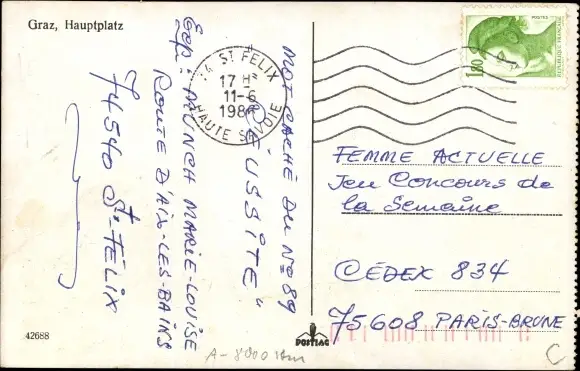 Graz, Hauptplatz
MOT CACHÉ DU N° 89
"RÉUSSITE"
Exp: MUNCH MARIE-LOUISE
ROUTE D'AIX-LES-BAINS
74540 St-FÉLIX
74 ST FELIX
17 H
11-6
HAUTE SAVOIE
POSTES
1,80
REPUBLIQUE FRANÇAISE
FEMME ACTUELLE
Jeu Concours de
la Semaine
CÉDEX 834
75608 PARIS-BRUNE
42688
PONTIAC
C